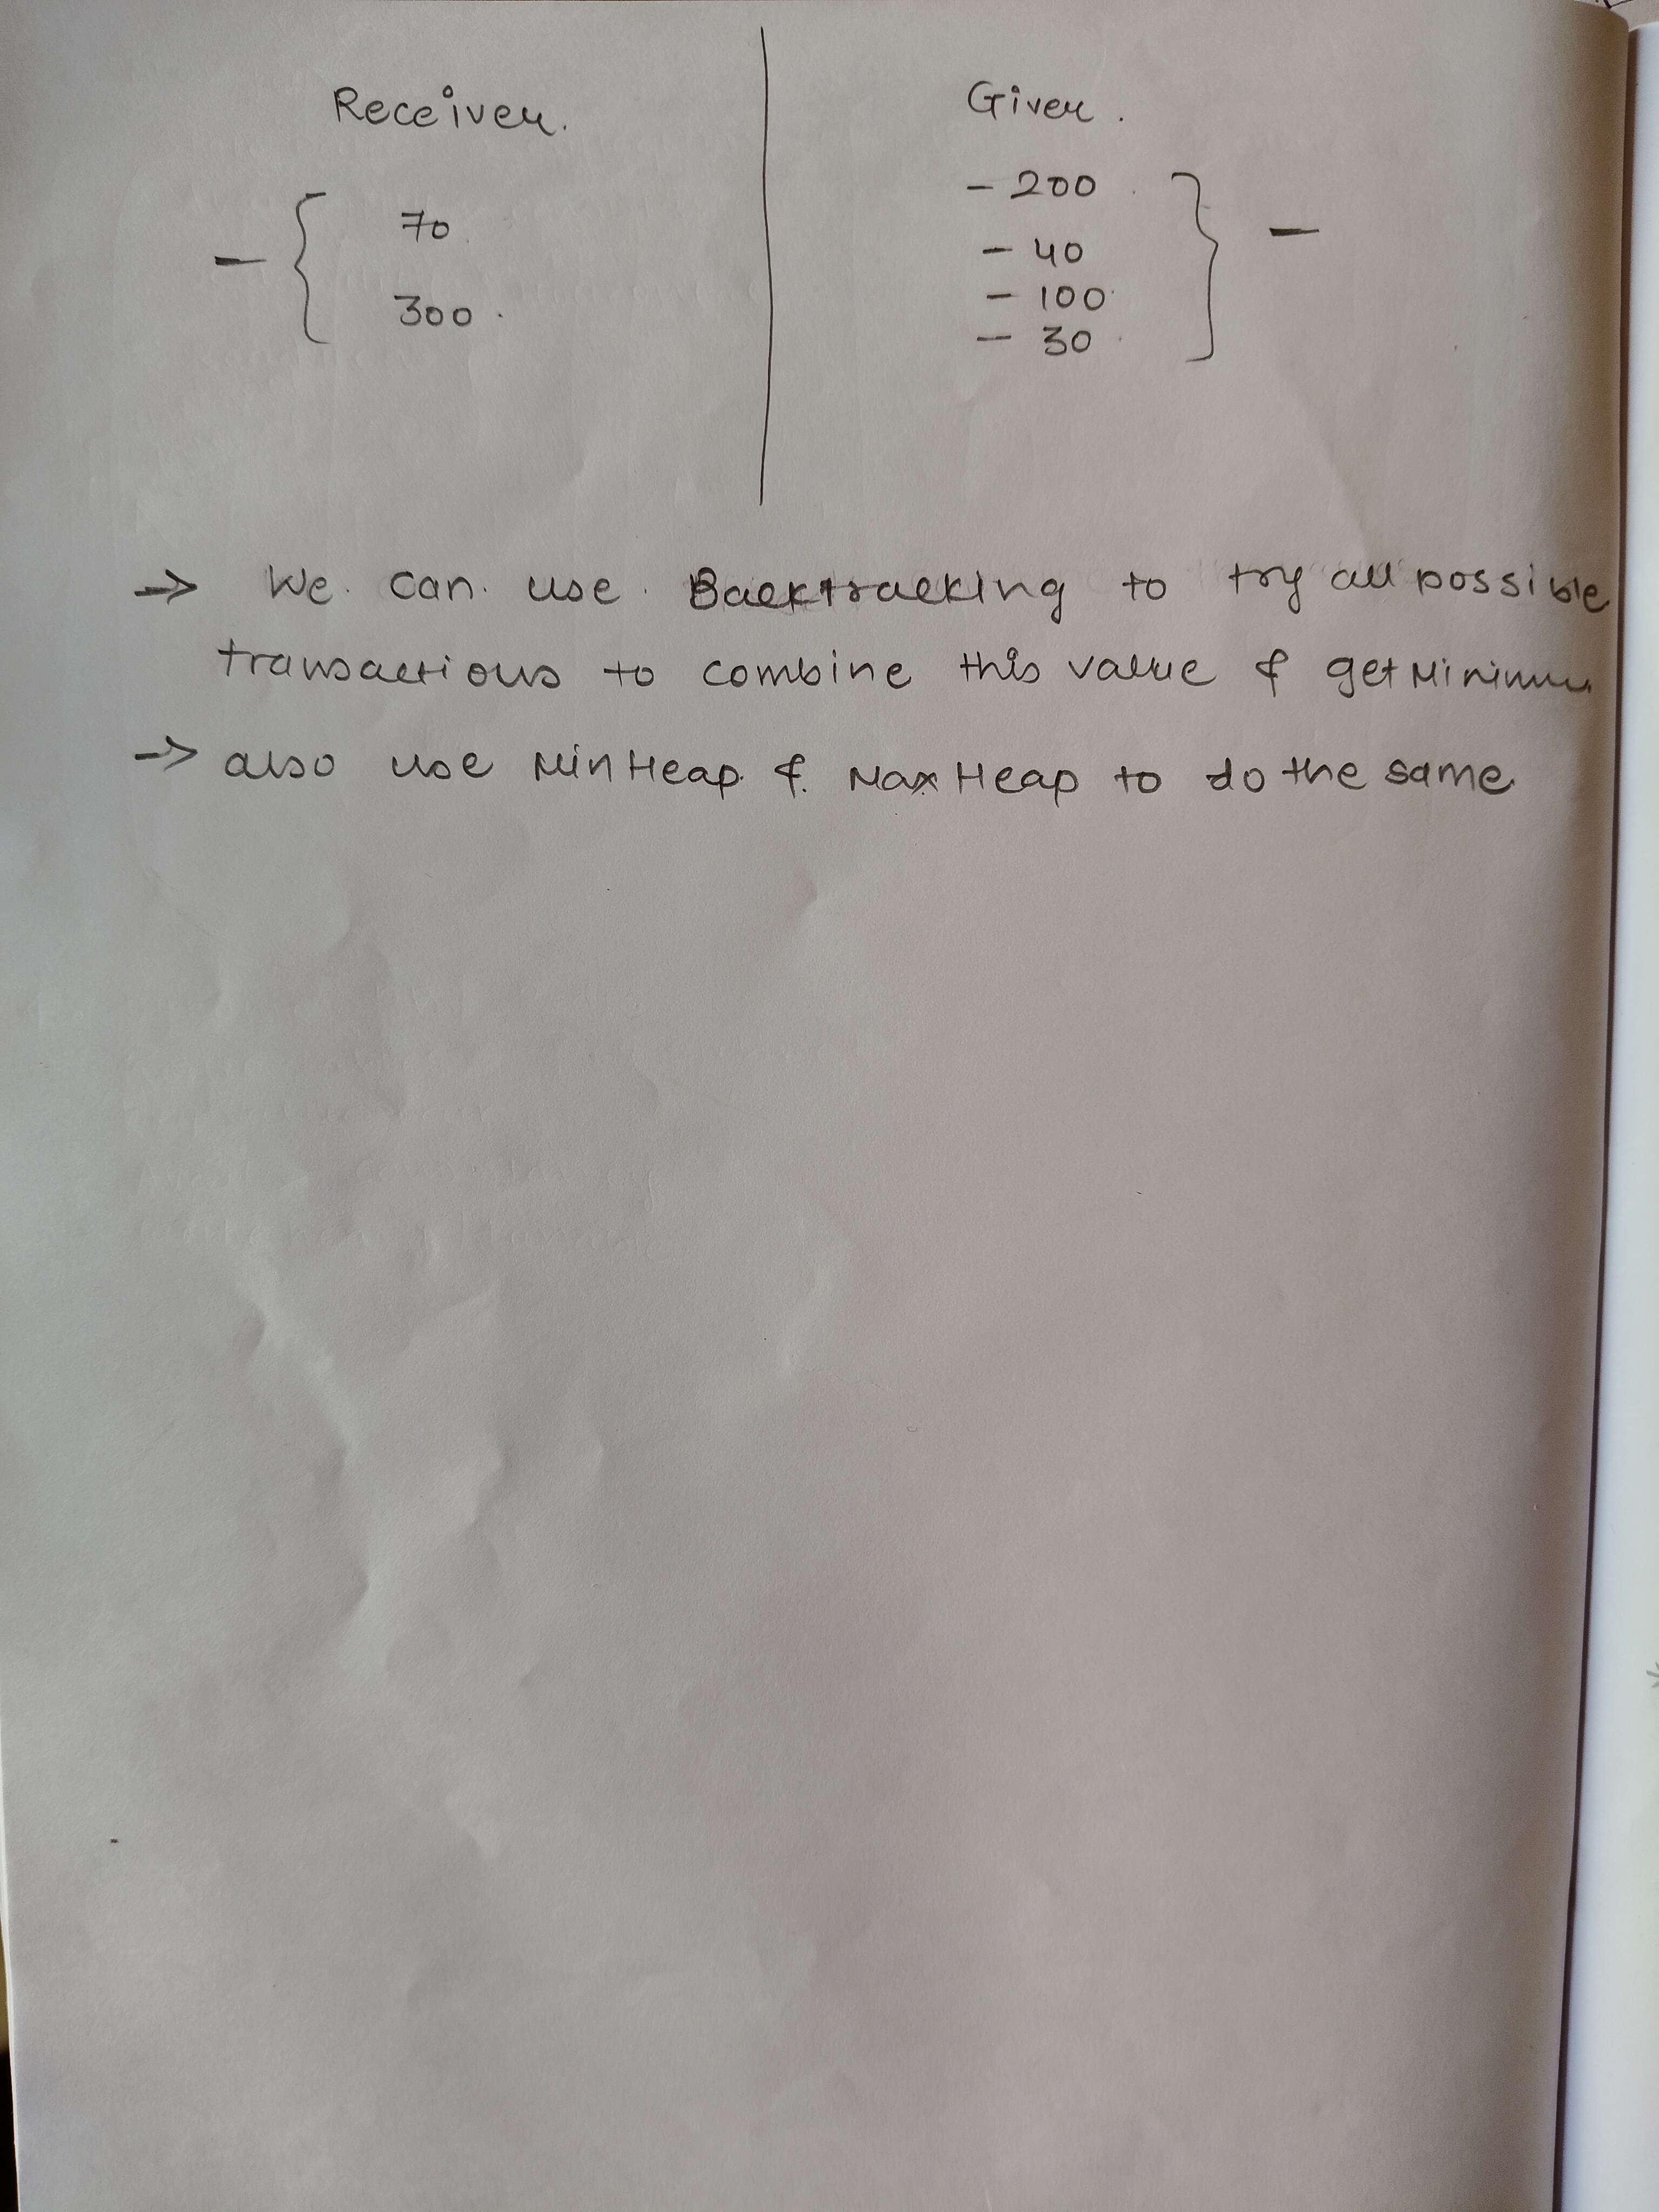 Receiver.
Giver.
70
300
- 200
- 40
- 100
- 30
→ We can use Backtracking to try all possible
transactions to combine this value & get Minimum
→ also use Min Heap & Max Heap to do the same